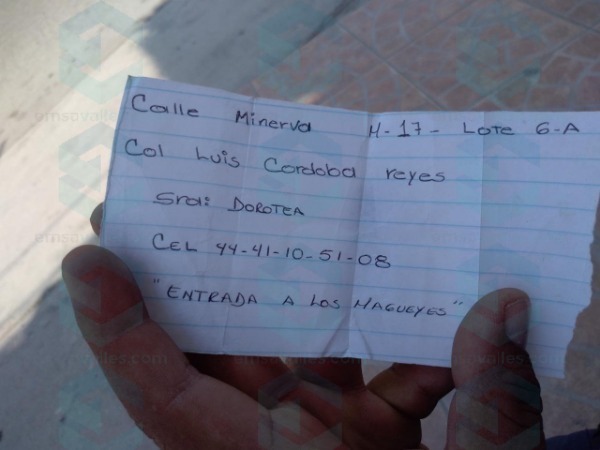 Calle Minerva M-17- Lote 6-A
Col Luis Cordoba reyes
Sra: DOROTEA
CEL 44-41-10-51-08
"ENTRADA A LOS MAGUEYES"